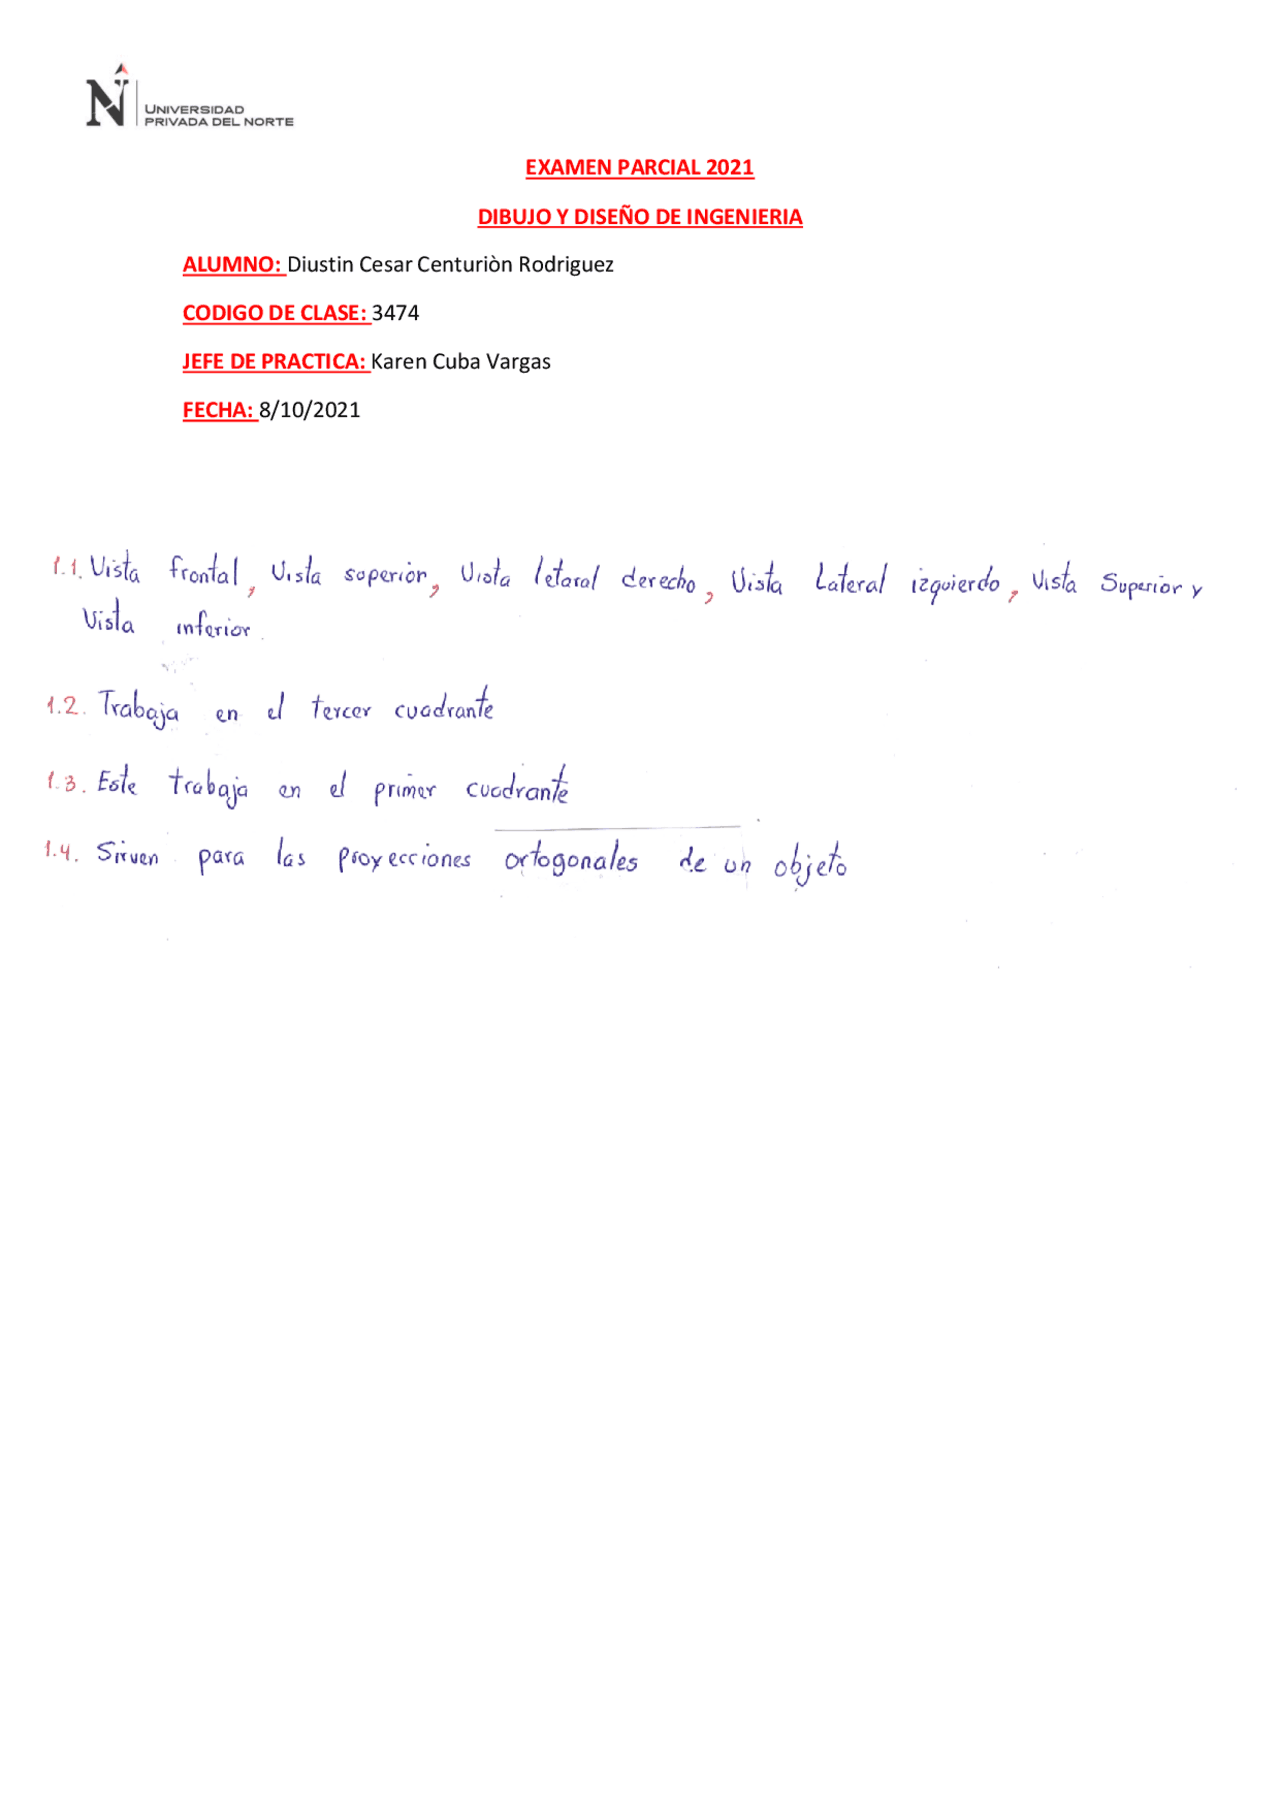 N UNIVERSIDAD
PRIVADA DEL NORTE
EXAMEN PARCIAL 2021
DIBUJO Y DISEÑO DE INGENIERIA
ALUMNO: Diustin Cesar Centuriòn Rodriguez
CODIGO DE CLASE: 3474
JEFE DE PRACTICA: Karen Cuba Vargas
FECHA: 8/10/2021
1.1. Vista frontal, Vista superior, Vista letaral derecho, Vista Lateral izquierdo, Vista Superior y
Vista inferior.
1.2. Trabaja en el tercer cuadrante
1.3. Este trabaja en el primer cuadrante
1.4. Sirven para las proyecciones ortogonales de un objeto